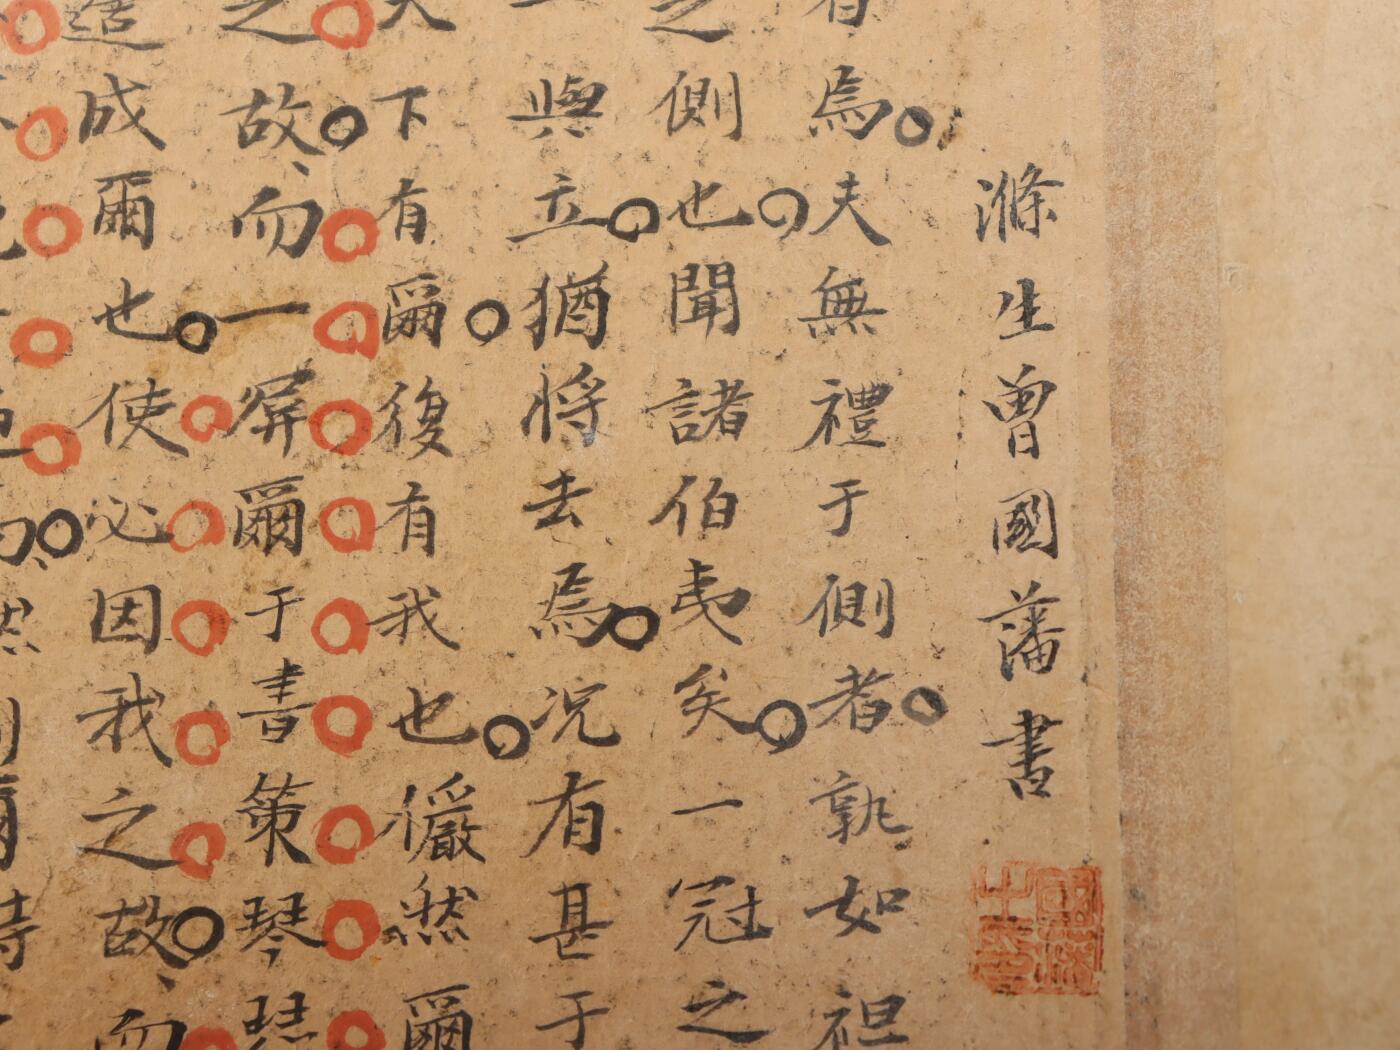 滌生曾國藩書
焉夫無禮于側者孰如袒
之側也聞諸伯夷矣一冠之
與立猶將去焉况有甚于
下有爾復有我也儼然爾
之故而一屏爾于書策琴瑟
成爾也使必因我之故而